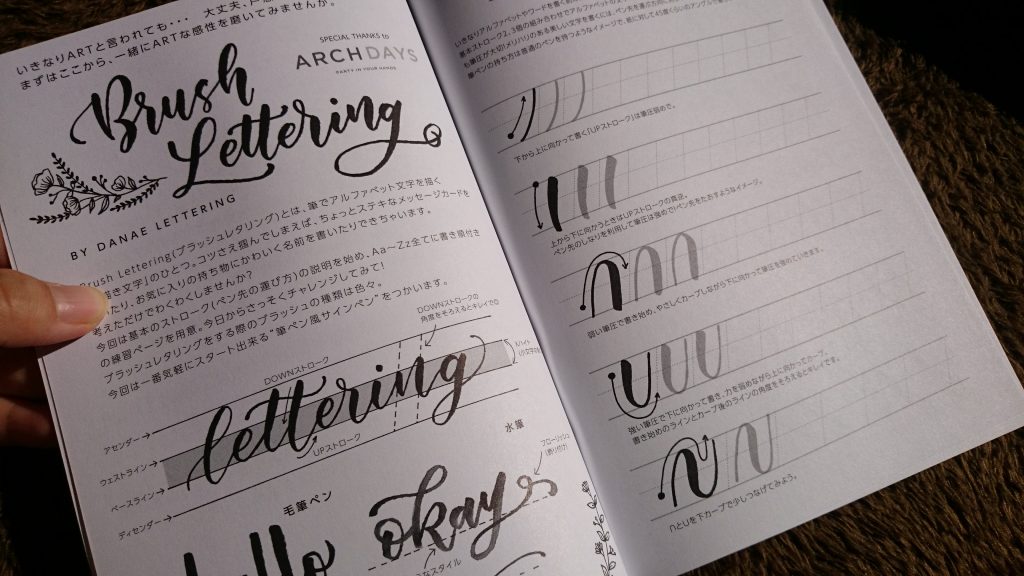 いきなりARTと言われても・・・ 大丈夫、
まずはここから、一緒にARTな感性を磨いてみませんか。
SPECIAL THANKS to
ARCHDAYS
PARTY IN YOUR HANDS
Brush
Lettering
BY DANAE LETTERING
Brush Lettering(ブラッシュレタリング)とは、筆でアルファベット文字を描く
き文字」のひとつ。コツさえ掴んでしまえば、ちょっとステキなメッセージカードを
たり、お気に入りの持ち物にかわいく名前を書いたりできちゃいます。
考えただけでわくわくしませんか?
今回は基本のストローク(ペン先の運び方)の説明を始め、Aa〜Zz全てに書き順付き
の練習ページを用意。今日からさっそくチャレンジしてみて!
ブラッシュレタリングをする際のブラッシュの種類は色々。
今回は一番気軽にスタート出来る"筆ペン風サインペン"をつかいます。
DOWNストロークの
角度をそろえるとキレイです
DOWNストローク
lettering
アセンダー
ウエストライン
ベースライン
ディセンダー
UPストローク
水筆
フローリッシュ
(飾り付け)
毛筆ペン
hello
okay
なスタイル
いきなりアルファベットやワードを書く前
基本ストローク2、3個の組み合わせでアルファベットの
も筆圧が大切!メリハリのある美しい文字を書くには、ペン先を運ぶ方向に
筆ペンの持ち方は普通のペンを持つようなイメージで、紙に対して45度くらいのアングルで
下から上に向かって書く「UPストローク」は筆圧弱めで。
上から下に向かうときはUPストロークの真逆。
ペン先のしなりを利用して筆圧は強め!ペン先をたおすようなイメージ。
弱い筆圧で書き始め、やさしくカーブしながら下に向かって筆圧を強めていきます。
強い筆圧で下に向かって書き、力を弱めながら上に向かってカーブ。
書き始めのラインとカーブ後のラインの角度をそろえるとキレイです。
nとUを下カーブで少しつなげてみよう。